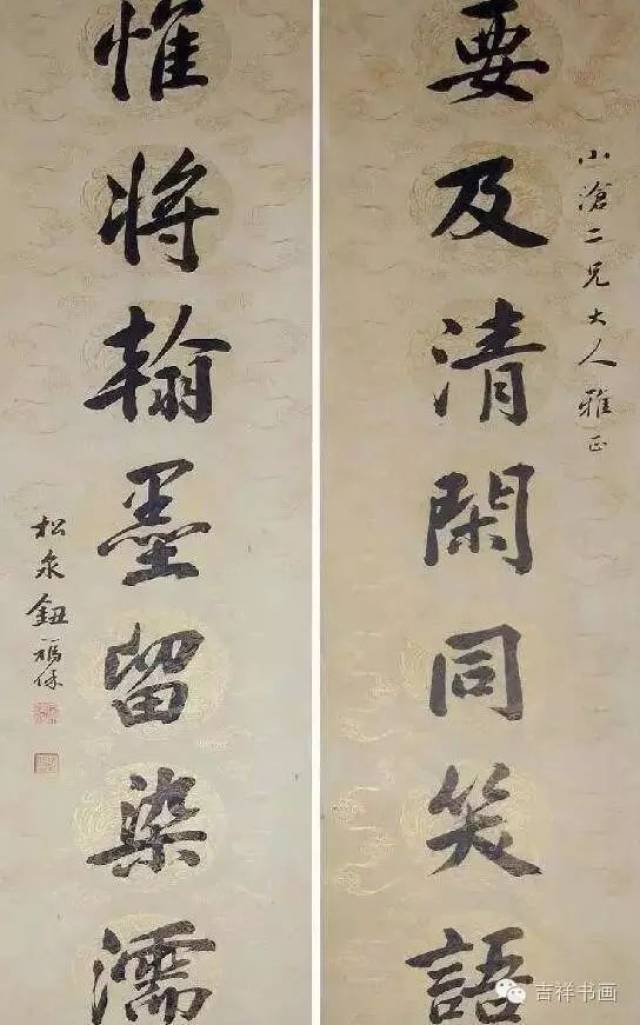 小滄二兄大人雅正
要及清閑同笑語
惟將翰墨留染濡
松泉鈕福保
吉祥书画